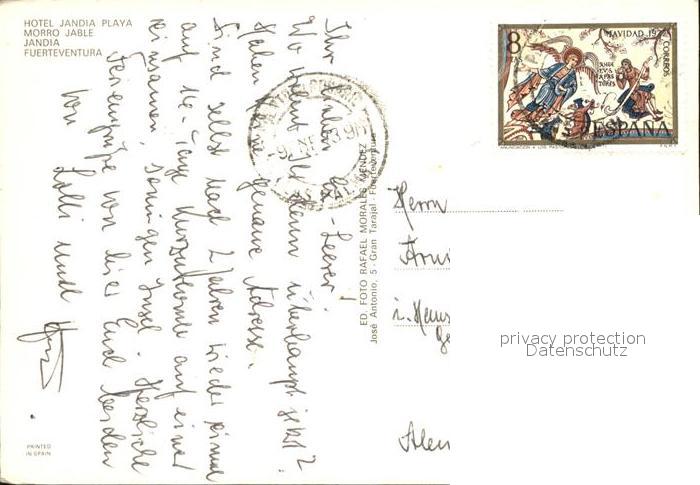 HOTEL JANDIA PLAYA
MORRO JABLE
JANDIA
FUERTEVENTURA
Ihr lieben
Wo wohnt Ihr denn überhaupt jetzt?
Haben keine genaue Adresse.
Sind selbst nach 2 Jahren wieder einmal
auf 10-Tage Kurzurlaub auf einer
einsamen, sonnigen Insel. Herzliche
Feriengrüße von hier Euch beiden
von Lolli und
ED. FOTO RAFAEL MORALES MENDEZ
José Antonio, 5 - Gran Tarajal - Fuerteventura
8
PTAS
NAVIDAD 1972
CORREOS
ESPAÑA
F.N.M.T.
Herrn
i. Hens
privacy protection
Datenschutz
PRINTED
IN SPAIN